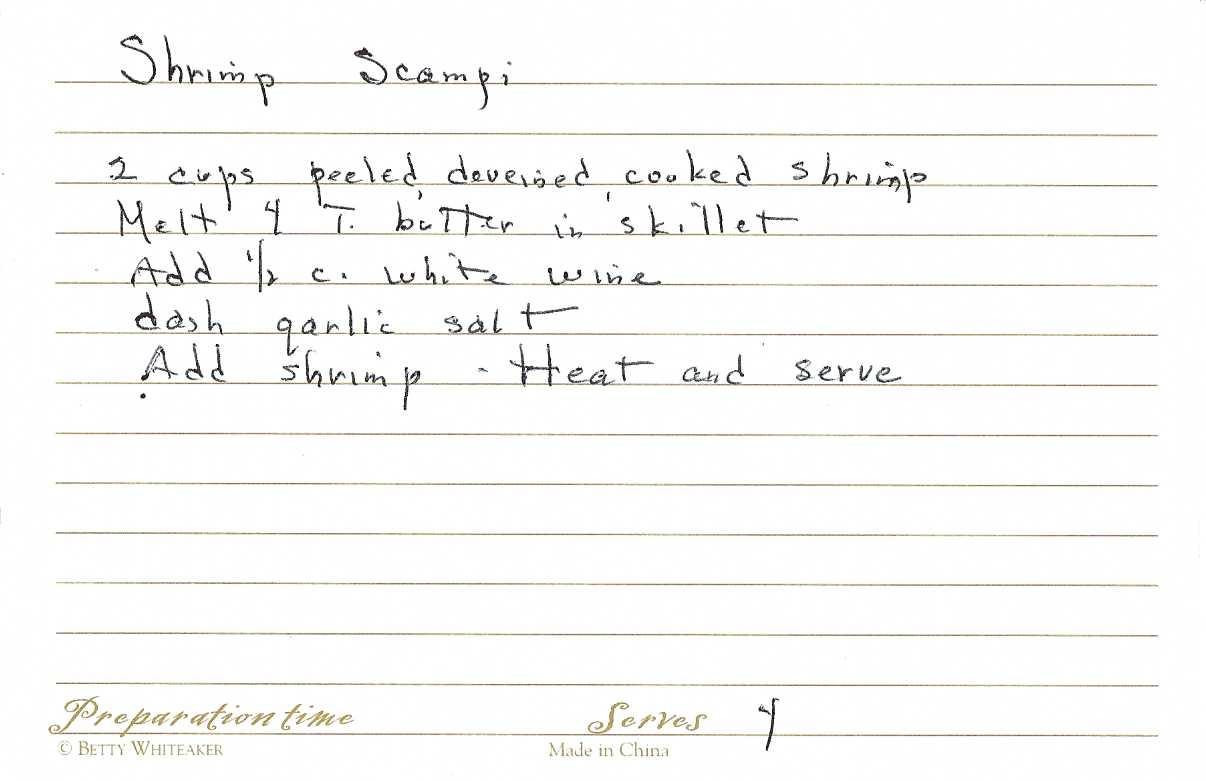 Shrimp Scampi
2 cups peeled, deveined, cooked shrimp
Melt 4 T. butter in skillet
Add 1/2 c. white wine
dash garlic salt
Add shrimp - Heat and serve
Preparation time Serves 4
© BETTY WHITEAKER Made in China